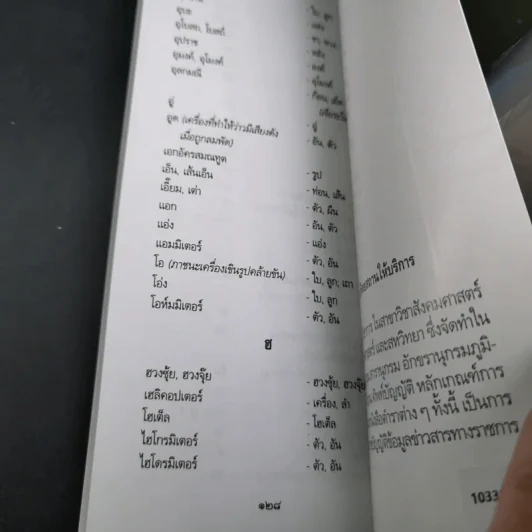 อุโบสถ, โบสถ์
อุปราช
อุมงค์, อุโมงค์
- อุโมงค์
อู่
- อู่
อูด (เครื่องที่ทำให้ว่าวมีเสียงดัง
เมื่อถูกลมพัด)
- อัน, ตัว
เอกอัครสมณทูต
- รูป
เอ็น, เส้นเอ็น
- ท่อน, เส้น
เอี๊ยม, เต่า
- ตัว, ผืน
แอก
- อัน, ตัว
แอ่ง
- แอ่ง
แอมมิเตอร์
- ตัว, อัน
โอ (ภาชนะเครื่องเขินรูปคล้ายขัน)
- ใบ, ลูก; เถา
โอ่ง
- ใบ, ลูก
โอห์มมิเตอร์
- ตัว, อัน
ฮ
ฮวงซุ้ย, ฮวงจุ๊ย
- ฮวงซุ้ย, ฮวงจุ๊ย
เฮลิคอปเตอร์
- เครื่อง, ลำ
โฮเต็ล
- โฮเต็ล
ไฮโกรมิเตอร์
- ตัว, อัน
ไฮโดรมิเตอร์
- ตัว, อัน
๑๒๘
สถานให้บริการ
ในสาขาวิชาสังคมศาสตร์
และสหวิทยา ซึ่งจัดทำใน
อักขรานุกรมภูมิ-
หลักเกณฑ์การ
ตำราต่าง ๆ ทั้งนี้ เป็นการ
ข้อมูลข่าวสารทางราชการ
1033